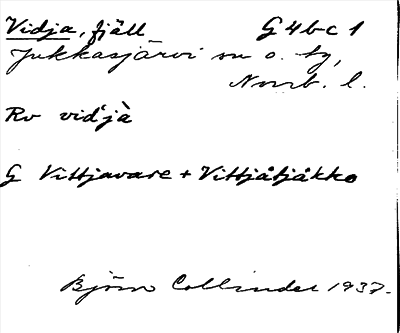 Vidja, fjäll G4bc1
Jukkasjärvi sn o. tg,
Norrb. l.
Rv vid'jà
G Vittjavare + Vittjåtjåkko
Björn Collinder 1937.